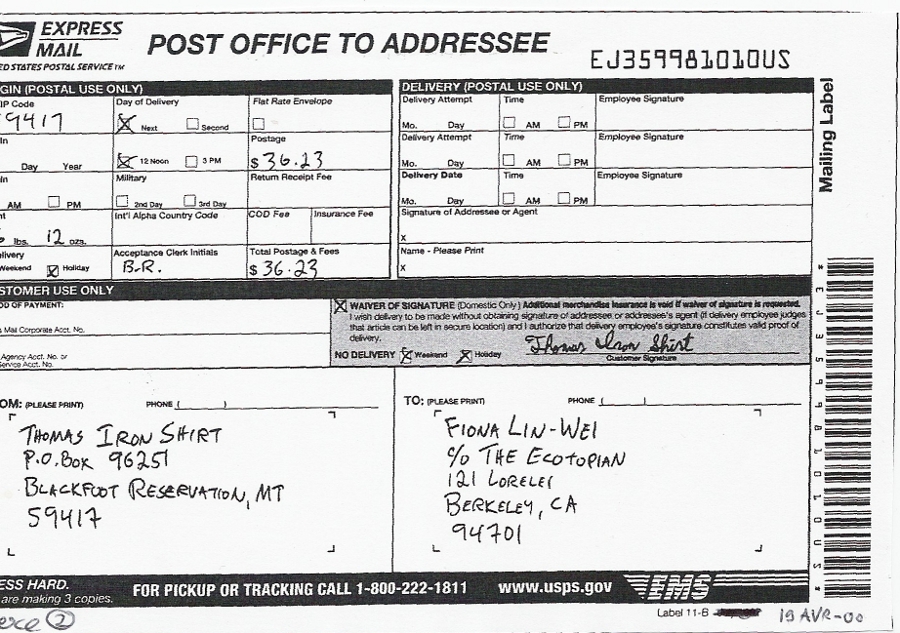 EXPRESS
MAIL
POST OFFICE TO ADDRESSEE
ED STATES POSTAL SERVICE™
EJ359981010US
GIN (POSTAL USE ONLY)
IP Code
59417
Day of Delivery
Next Second
Flat Rate Envelope
In
Day Year
12 Noon 3 PM
Postage
$ 36.23
In
AM PM
Military
2nd Day 3rd Day
Return Receipt Fee
lbs. 12 ozs.
Int'l Alpha Country Code
COD Fee Insurance Fee
livery
Weekend Holiday
Acceptance Clerk Initials
B.R.
Total Postage & Fees
$ 36.23
DELIVERY (POSTAL USE ONLY)
Delivery Attempt Time Employee Signature
Mo. Day AM PM
Delivery Attempt Time Employee Signature
Mo. Day AM PM
Delivery Date Time Employee Signature
Mo. Day AM PM
Signature of Addressee or Agent
X
Name - Please Print
X
Mailing Label
STOMER USE ONLY
OD OF PAYMENT:
s Mail Corporate Acct. No.
Agency Acct. No. or
Service Acct. No.
WAIVER OF SIGNATURE (Domestic Only) Additional merchandise insurance is void if waiver of signature is requested.
I wish delivery to be made without obtaining signature of addressee or addressee's agent (if delivery employee judges
that article can be left in secure location) and I authorize that delivery employee's signature constitutes valid proof of
delivery.
NO DELIVERY Weekend Holiday
Thomas Iron Shirt
Customer Signature
OM: (PLEASE PRINT) PHONE ( )
THOMAS IRON SHIRT
P.O. BOX 96251
BLACKFOOT RESERVATION, MT
59417
TO: (PLEASE PRINT) PHONE ( )
FIONA LIN-WEI
c/o THE ECOTOPIAN
121 LORELEI
BERKELEY, CA
94701
* EJ359981010US *
ESS HARD.
are making 3 copies.
FOR PICKUP OR TRACKING CALL 1-800-222-1811 www.usps.gov EMS
Label 11-B
2
19 AVR-00